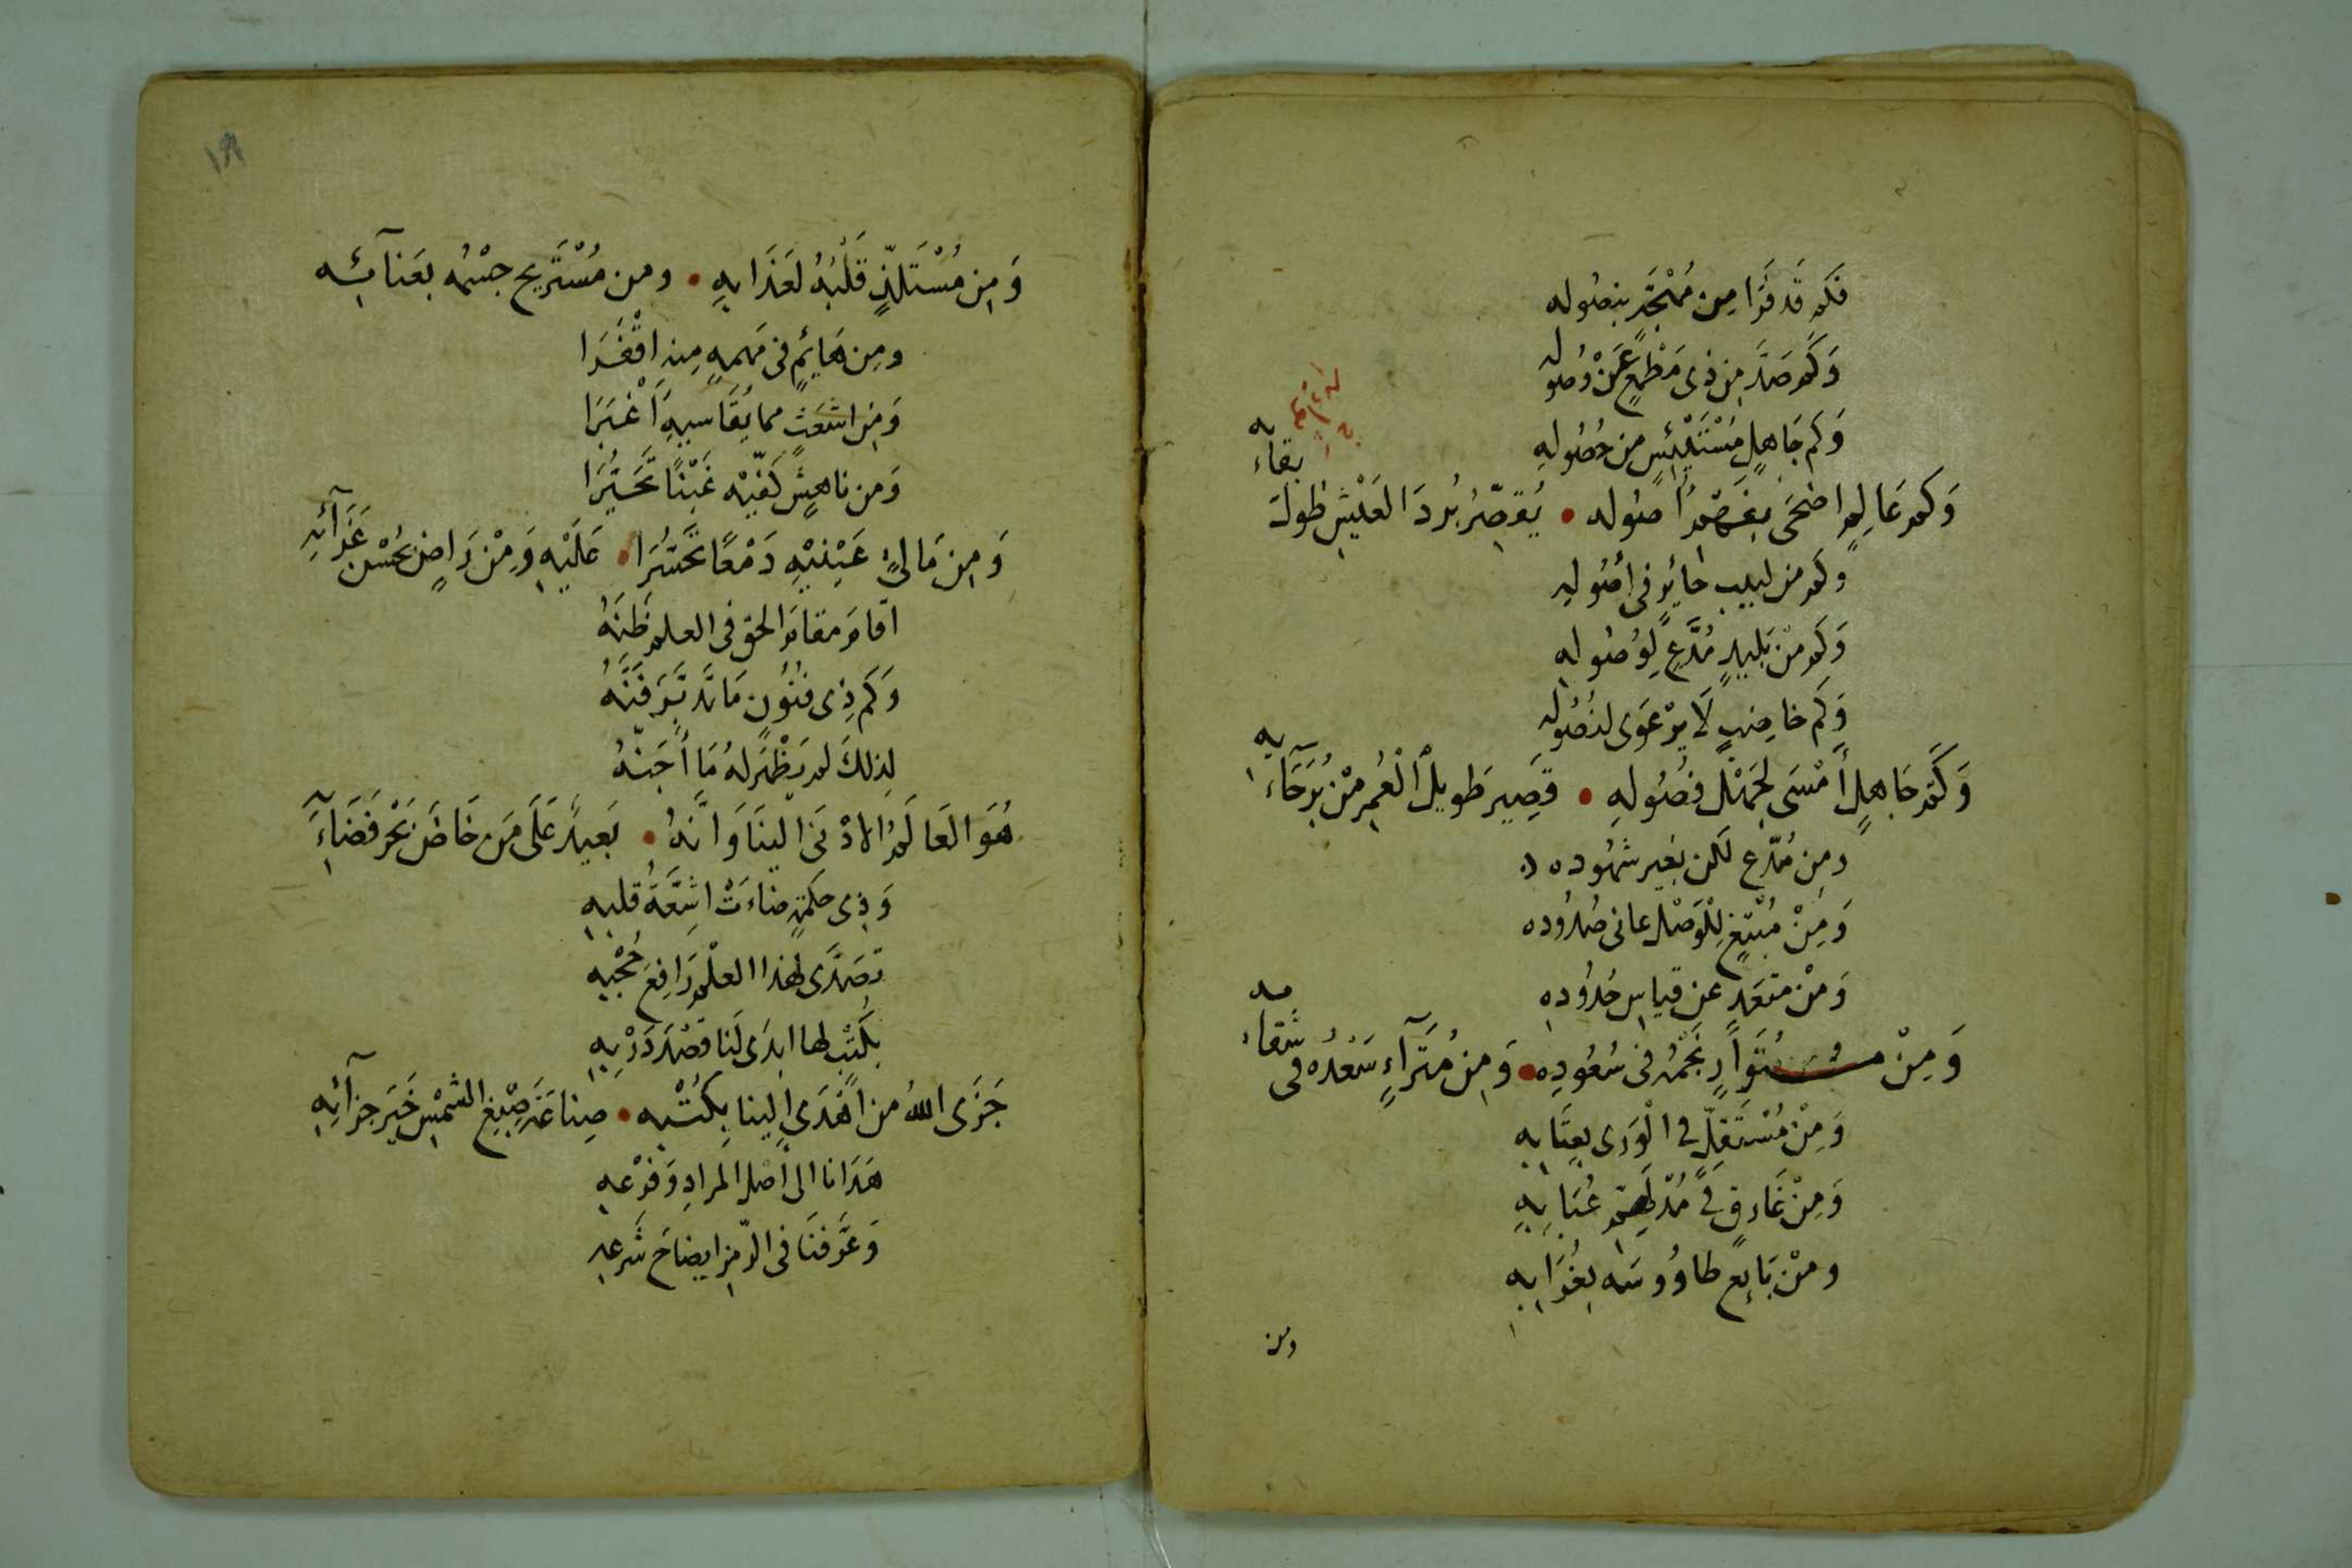 فكم قد فرا من مهجة بنصوله
وكم صد من ذى مطمع عن وصوله
وكم جاهل مستيئس من حصوله
وكم عالم اضحى بفهم اصوله • يقصر برد العيش طول بقائه
وكم من لبيب حائر فى أصوله
وكم من بليد مدع لوصوله
وكم خاضب لا يرعوى لنصوله
وكم جاهل أمسى لجهل فصوله • قصير طويل العمر من برحائه
ومن مدع لكن بغير شهوده
ومن مبتغ للوصل عانى صدوده
ومن متعد عن قياس حدوده
ومن متوار نجمه فى سعوده • ومن متراء سعده فى شقائه
ومن مستقل فى الورى بعتابه
ومن غارق فى مدلهم عبابه
ومن بايع طاووسه بغرابه
ومن
ومن مستلذ قلبه لعذابه • ومن مستريح جسمه بعنائه
ومن هائم فى مهمه منه اقفرا
ومن اشعث مما يقاسيه أغبرا
ومن ناهش كفيه غبنا تحيرا
ومن مالئ عينيه دمعا تحسرا • عليه ومن راض بحسن عزائه
اقام مقام الحق فى العلم ظنه
وكم ذى فنون ما تدبر فنه
لذلك لم يظهر له ما أجنه
هو العالم الادنى الينا وانه • بعيد على من خاض بحر فضائه
وذى حكمة ضاءت اشعة قلبه
تصدى لهذا العلم رافع حجبه
بكتب لها ابدى لنا قصد دربه
جزى الله من اهدى الينا بكتبه • صناعة صبغ الشمس خير جزائه
هدانا الى أصل المراد وفرعه
وعرفنا فى الرمز ايضاح شرعه